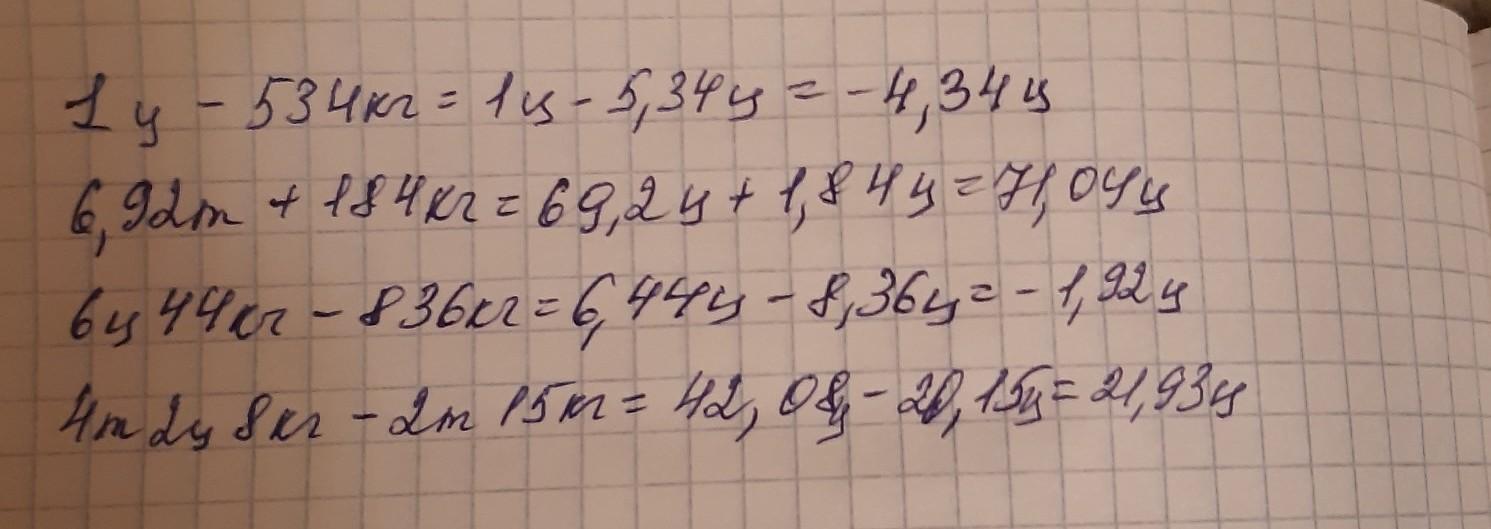 1ц - 534кг = 1ц - 5,34ц = -4,34ц
6,92т + 184кг = 69,2ц + 1,84ц = 71,04ц
6ц 44кг - 836кг = 6,44ц - 8,36ц = - 1,92ц
4т 2ц 8кг - 2т 15кг = 42,08ц - 20,15ц = 21,93ц